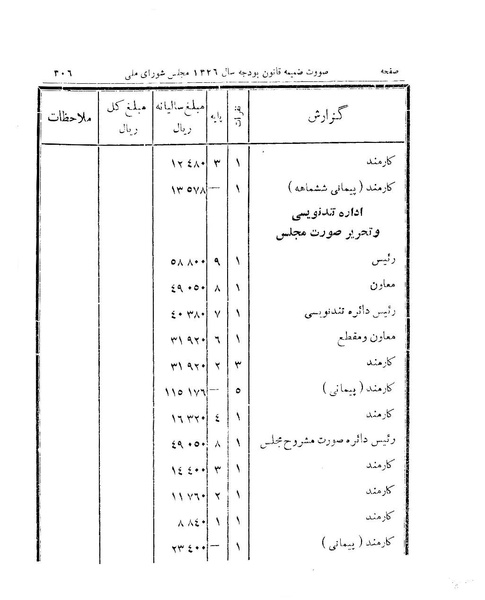 صفحه صورت ضمیمه قانون بودجه سال ۱۳۲۶ مجلس شورای ملی ۳۰۶
گزارش نفرات پایه مبلغ سالیانه ریال مبلغ کل ریال ملاحظات
کارمند ۱ ۳ ۱۲۴۸۰
کارمند ( پیمانی ششماهه ) ۱ — ۱۳۵۷۸
اداره تندنویسی
و تحریر صورت مجلس
رئیس ۱ ۹ ۵۸۸۰۰
معاون ۱ ۸ ۴۹۰۵۰
رئیس دائره تندنویسی ۱ ۷ ۴۰۳۸۰
معاون ومقطع ۱ ۶ ۳۱۹۲۰
کارمند ۳ ۲ ۳۱۹۲۰
کارمند ( پیمانی ) ۵ — ۱۱۵۱۷۶
کارمند ۱ ۴ ۱۶۳۲۰
رئیس دائره صورت مشروح مجلس ۱ ۸ ۴۹۰۵۰
کارمند ۱ ۳ ۱۴۴۰۰
کارمند ۱ ۲ ۱۱۷۶۰
کارمند ۱ ۱ ۸۸۴۰
کارمند ( پیمانی ) ۱ — ۲۳۴۰۰